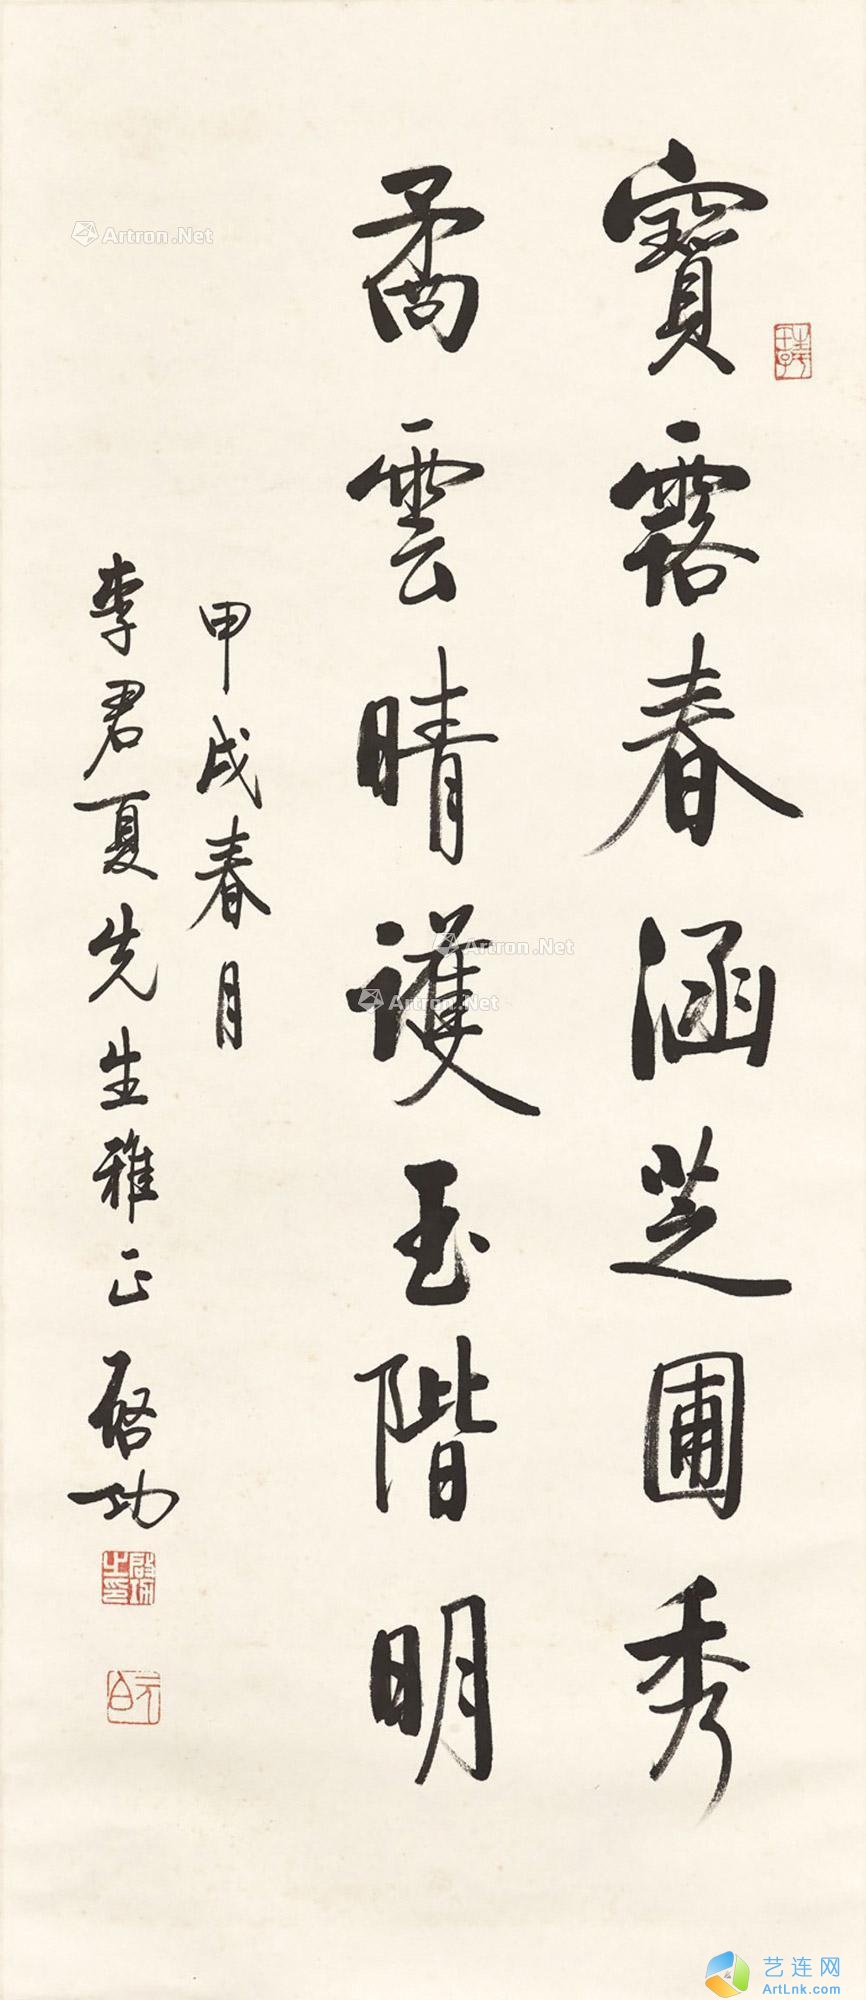 寶露春涵芝圃秀
矞雲晴護玉階明
甲戌春月
李君夏先生雅正 启功
啟功之印
元白
Artron.Net
Artron.Net
Artron.Net
艺连网
ArtLnk.com